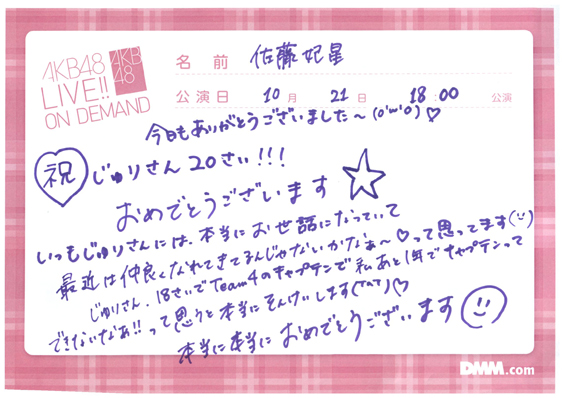 AKB48
LIVE!!
ON DEMAND
AKB
48
名前 佐藤妃星
公演日 10月 21日 18:00 公演
今日もありがとうございました〜(o'ω'o)♡
祝 じゅりさん20さい!!!
おめでとうございます ☆
いつもじゅりさんには、本当にお世話になっていて
最近は仲良くなれてきてるんじゃないかなぁ〜♡って思ってます(¨)
じゅりさん、18さいでTeam4のキャプテンで私あと1年でキャプテンって
できないなぁ!!って思うと本当にそんけいします(TˆT)♡
本当に本当におめでとうございます
DMM.com